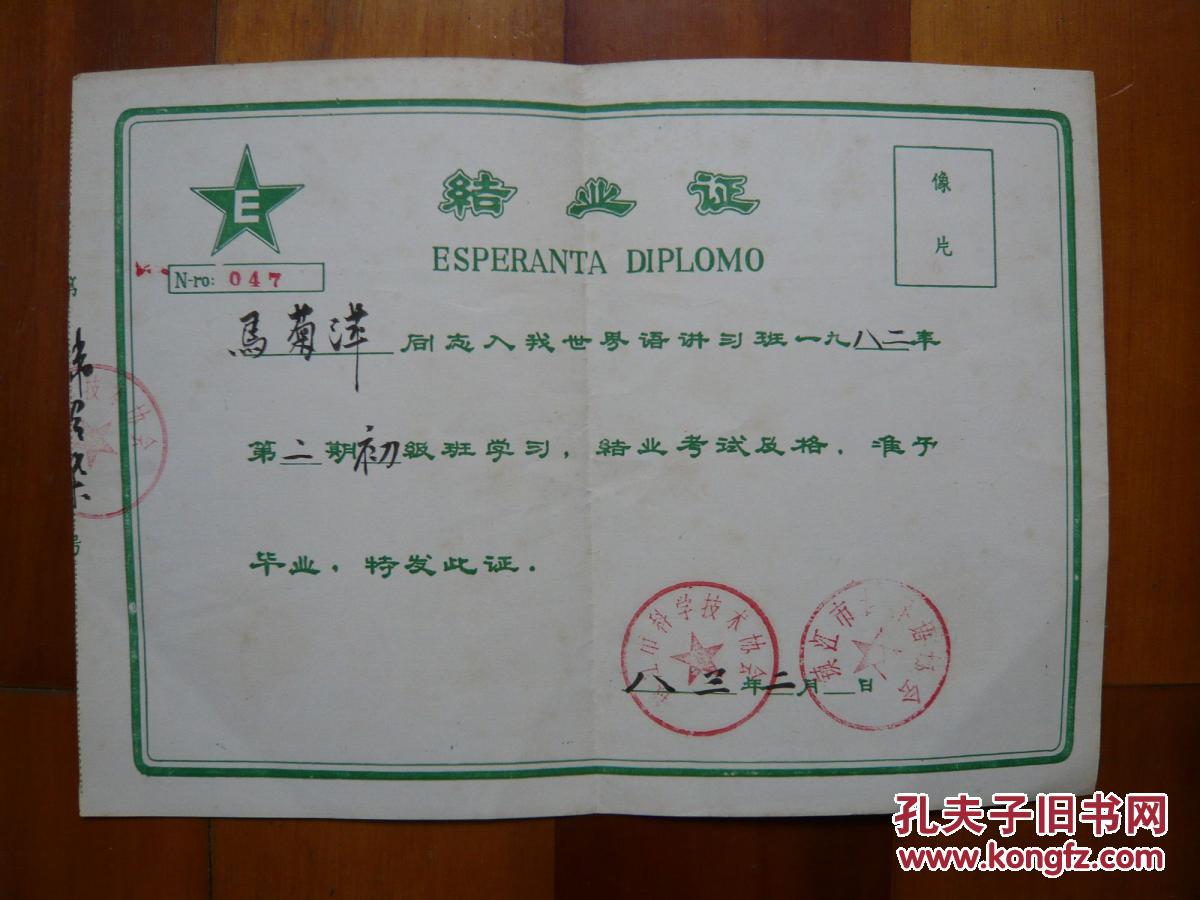 E
結业证
像片
ESPERANTA DIPLOMO
N-ro: 047
馬菊萍 同志入我世界语讲习班一九八二年
第二期初级班学习，结业考试及格，准予
毕业，特发此证．
市科学技术协会
镇江市世界语协会
八三年二月 日
技术协会
号
孔夫子旧书网
www.kongfz.com